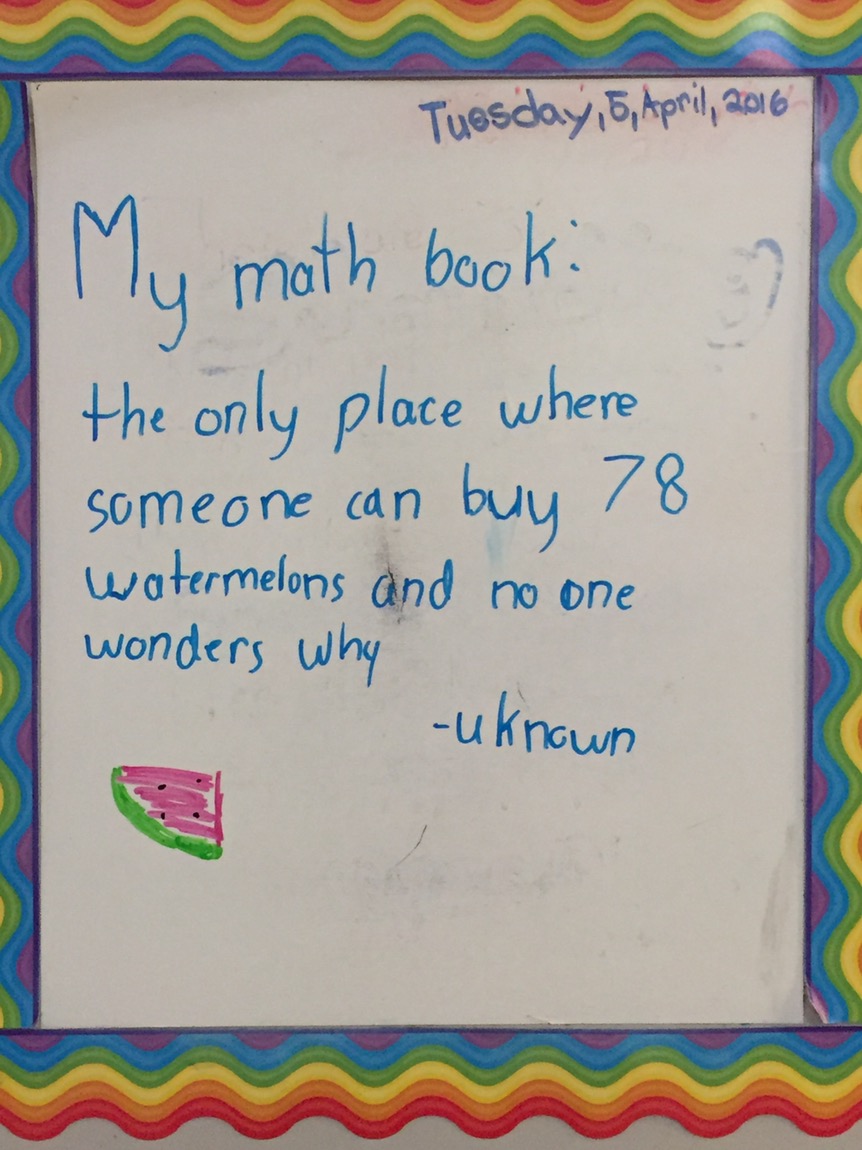 Tuesday, 5, April, 2016
My math book:
the only place where
someone can buy 78
watermelons and no one
wonders why
-uknown